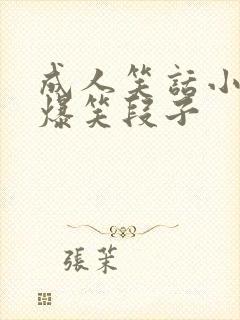 成人笑話小
爆笑段子
張茉